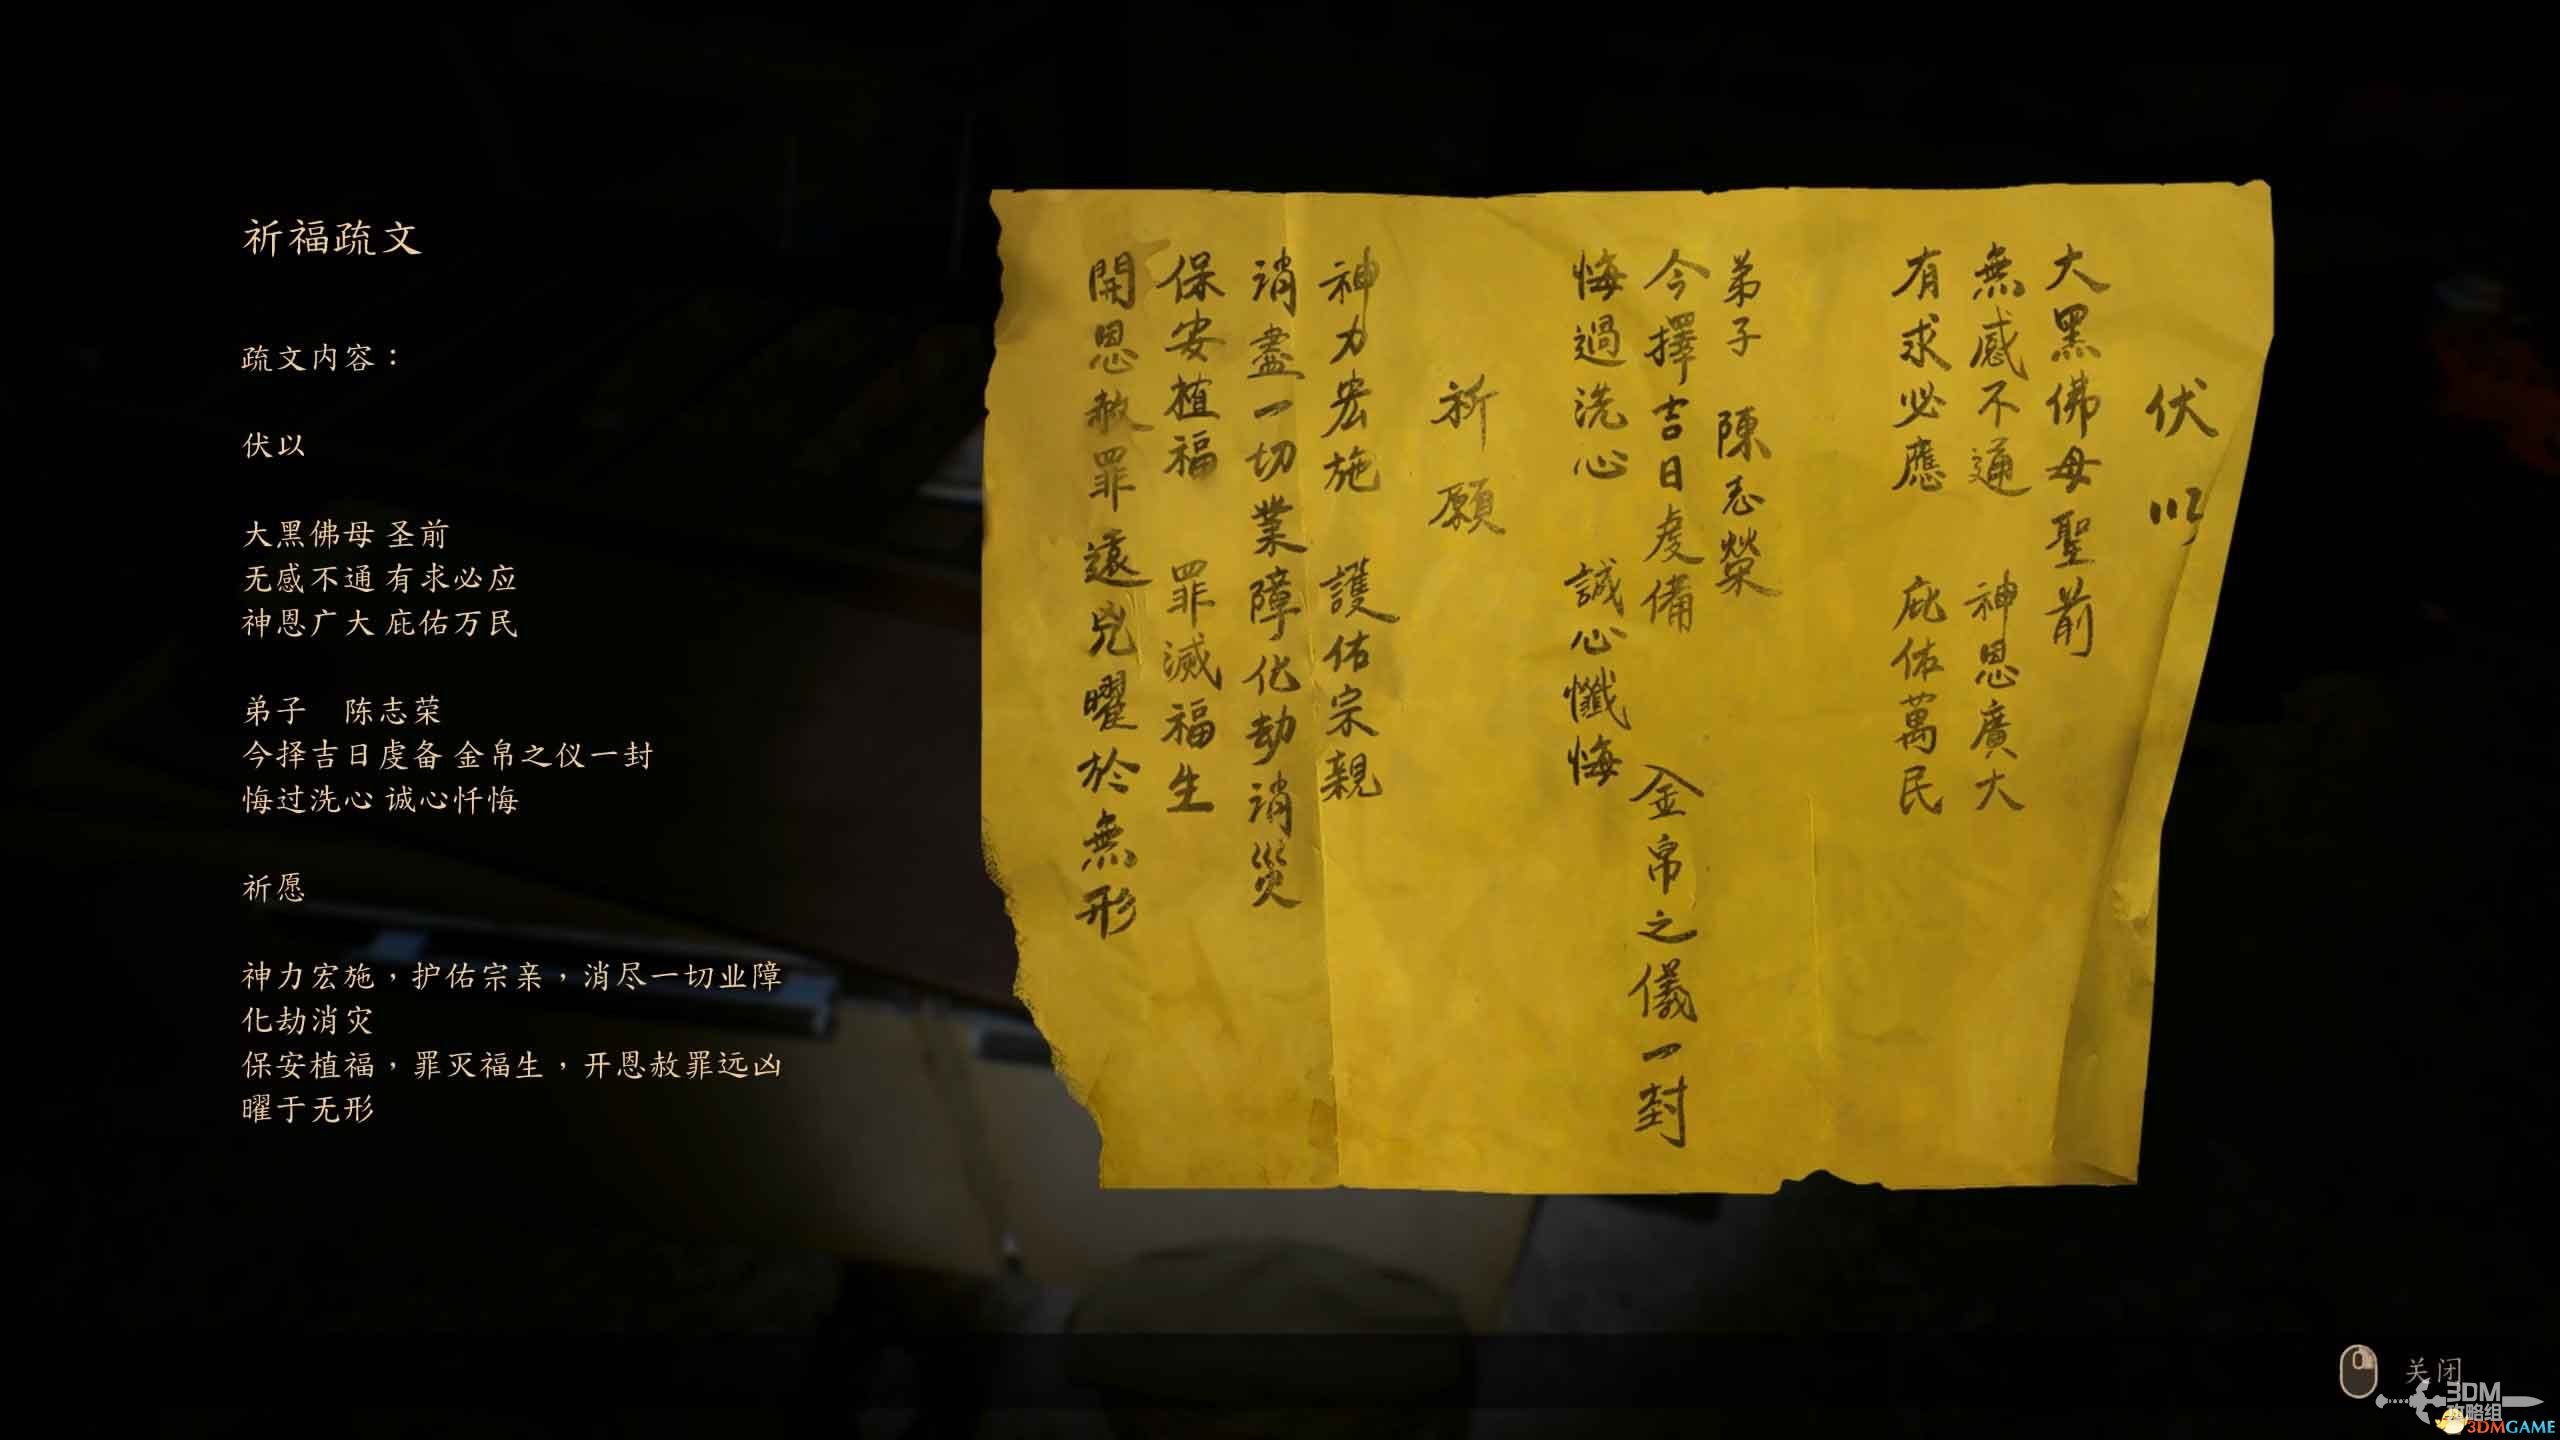 祈福疏文
疏文内容：
伏以
大黑佛母 圣前
无感不通 有求必应
神恩广大 庇佑万民
弟子　陈志荣
今择吉日虔备 金帛之仪一封
悔过洗心 诚心忏悔
祈愿
神力宏施，护佑宗亲，消尽一切业障
化劫消灾
保安植福，罪灭福生，开恩赦罪远凶
曜于无形
伏以
大黑佛母聖前
無感不通　神恩廣大
有求必應　庇佑萬民
弟子　陳志榮
今擇吉日虔備　金帛之儀一封
悔過洗心　誠心懺悔
祈願
神力宏施　護佑宗親
消盡一切業障化劫消災
保安植福　罪滅福生
開恩赦罪遠兇曜於無形
关闭
3DM
攻略组
3DMGAME